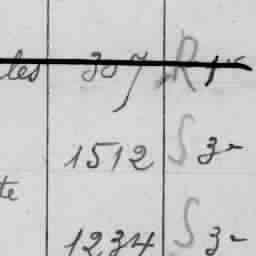 les 307 R
1512 S 3-
te
1234 S 3-